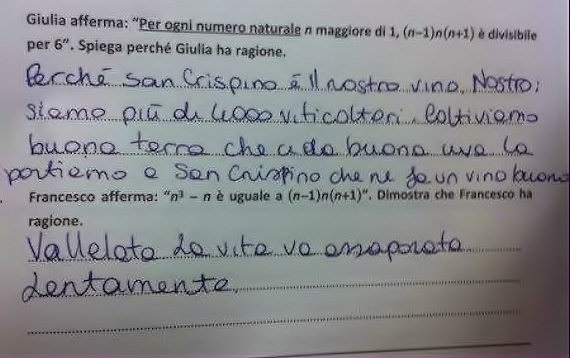 Giulia afferma: "Per ogni numero naturale n maggiore di 1, (n–1)n(n+1) è divisibile
per 6". Spiega perché Giulia ha ragione.
Perché San Crispino è Il nostro vino. Nostro:
siamo più di 4000 viticoltori. Coltiviamo
buona terra che ci da buona uva la
portiamo a San Crispino che ne fa un vino buono
Francesco afferma: "n³ – n è uguale a (n–1)n(n+1)". Dimostra che Francesco ha
ragione.
Vallelata la vita va assaporata
Lentamente.